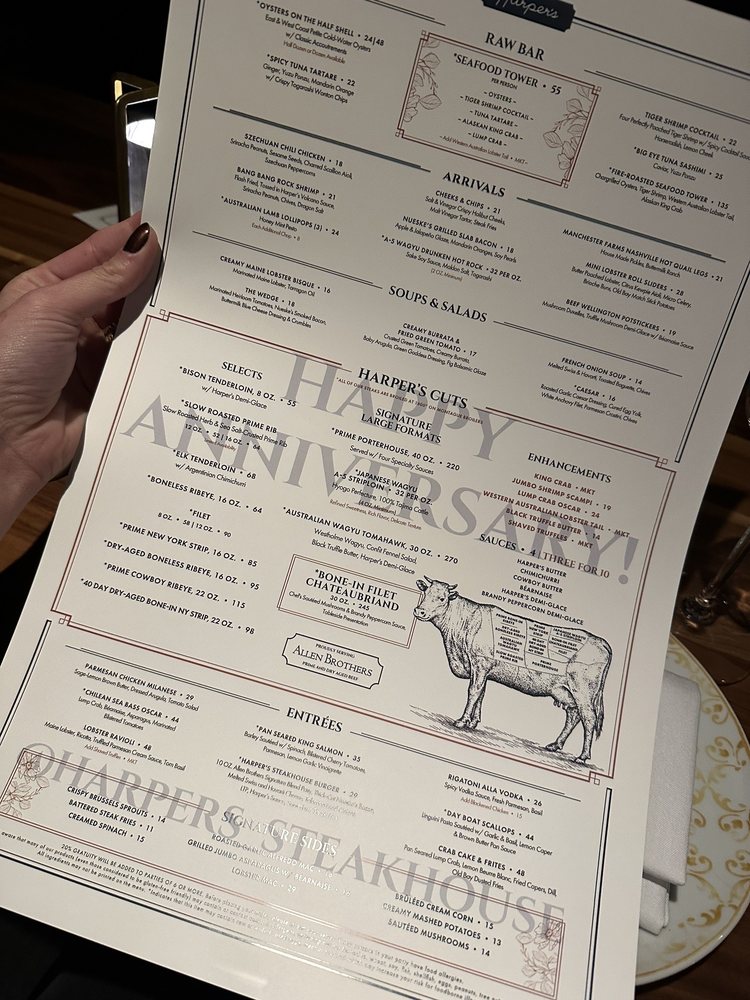 Harper's
RAW BAR
*OYSTERS ON THE HALF SHELL • 24|48
East & West Coast Petite Cold-Water Oysters
w/ Classic Accoutrements
Half Dozen or Dozen Available
*SPICY TUNA TARTARE • 22
Ginger, Yuzu Ponzu, Mandarin Orange
w/ Crispy Togarashi Wonton Chips
*SEAFOOD TOWER • 55
PER PERSON
– OYSTERS –
– TIGER SHRIMP COCKTAIL –
– TUNA TARTARE –
– ALASKAN KING CRAB –
– LUMP CRAB –
– Add Western Australian Lobster Tail • MKT –
TIGER SHRIMP COCKTAIL • 22
Four Perfectly Poached Tiger Shrimp w/ Spicy Cocktail
Horseradish, Lemon Cheek
*BIG EYE TUNA SASHIMI • 25
Caviar, Yuzu Ponzu
*FIRE-ROASTED SEAFOOD TOWER • 135
Chargrilled Oysters, Tiger Shrimp, Western Australian Lobster Tail,
Alaskan King Crab
ARRIVALS
SZECHUAN CHILI CHICKEN • 18
Sriracha Peanuts, Sesame Seeds, Charred Scallion Aioli,
Szechuan Peppercorns
BANG BANG ROCK SHRIMP • 21
Flash Fried, Tossed in Harper's Volcano Sauce,
Sriracha Peanuts, Chives, Dragon Salt
*AUSTRALIAN LAMB LOLLIPOPS (3) • 24
Honey Mint Pesto
Each Additional Chop • 8
CHEEKS & CHIPS • 21
Salt & Vinegar Crispy Halibut Cheeks,
Malt Vinegar Tartar, Steak Fries
NUESKE'S GRILLED SLAB BACON • 18
Apple & Jalapeño Glaze, Mandarin Oranges, Soy Pearls
*A-5 WAGYU DRUNKEN HOT ROCK • 32 PER OZ.
Sake Soy Sauce, Maldon Salt, Togarashi
(2 OZ. Minimum)
MANCHESTER FARMS NASHVILLE HOT QUAIL LEGS • 21
House Made Pickles, Buttermilk Ranch
MINI LOBSTER ROLL SLIDERS • 28
Butter Poached Lobster, Citrus Kewpie Aioli, Micro Celery,
Brioche Buns, Old Bay Match Stick Potatoes
BEEF WELLINGTON POTSTICKERS • 19
Mushroom Duxelles, Truffle Mushroom Demi-Glace w/ Béarnaise Sauce
SOUPS & SALADS
CREAMY MAINE LOBSTER BISQUE • 16
Marinated Maine Lobster, Tarragon Oil
THE WEDGE • 18
Marinated Heirloom Tomatoes, Nueske's Smoked Bacon,
Buttermilk Blue Cheese Dressing & Crumbles
CREAMY BURRATA &
FRIED GREEN TOMATO • 17
Crusted Green Tomatoes, Creamy Burrata,
Baby Arugula, Green Goddess Dressing, Fig Balsamic Glaze
FRENCH ONION SOUP • 14
Melted Swiss & Havarti, Toasted Baguette, Chives
*CAESAR • 16
Roasted Garlic Caesar Dressing, Cured Egg Yolk,
White Anchovy Filet, Parmesan Crostini, Chives
HARPER'S CUTS
*ALL OF OUR STEAKS ARE BROILED AT 1800° ON MONTAGUE BROILERS
SELECTS
*BISON TENDERLOIN, 8 OZ. • 55
w/ Harper's Demi-Glace
*SLOW ROASTED PRIME RIB
Slow Roasted Herb & Sea Salt Crusted Prime Rib
12 OZ. • 52 | 16 OZ. • 64
*ELK TENDERLOIN • 68
w/ Argentinian Chimichurri
*BONELESS RIBEYE, 16 OZ. • 64
*FILET
8 OZ. • 58 | 12 OZ. • 90
*PRIME NEW YORK STRIP, 16 OZ. • 85
*DRY-AGED BONELESS RIBEYE, 16 OZ. • 95
*PRIME COWBOY RIBEYE, 22 OZ. • 115
*40 DAY DRY-AGED BONE-IN NY STRIP, 22 OZ. • 98
SIGNATURE
LARGE FORMATS
*PRIME PORTERHOUSE, 40 OZ. • 220
Served w/ Four Specialty Sauces
*JAPANESE WAGYU
A-5 STRIPLOIN • 32 PER OZ.
Hyogo Prefecture, 100% Tajima Cattle
(4 OZ. Minimum)
Refined Sweetness, Rich Flavor, Delicate Texture
*AUSTRALIAN WAGYU TOMAHAWK, 30 OZ. • 270
Westholme Wagyu, Confit Fennel Salad,
Black Truffle Butter, Harper's Demi-Glace
*BONE-IN FILET
CHATEAUBRIAND
30 OZ. • 245
Chef's Sautéed Mushrooms & Brandy Peppercorn Sauce,
Tableside Presentation
PROUDLY SERVING
ALLEN BROTHERS
PRIME AND DRY AGED BEEF
ENHANCEMENTS
KING CRAB • MKT
JUMBO SHRIMP SCAMPI • 19
LUMP CRAB OSCAR • 24
WESTERN AUSTRALIAN LOBSTER TAIL • MKT
BLACK TRUFFLE BUTTER • 14
SHAVED TRUFFLES • MKT
SAUCES • 4 | THREE FOR 10
HARPER'S BUTTER
CHIMICHURRI
COWBOY BUTTER
BÉARNAISE
HARPER'S DEMI-GLACE
BRANDY PEPPERCORN DEMI-GLACE
HAPPY
ANNIVERSARY!
ENTRÉES
PARMESAN CHICKEN MILANESE • 29
Sage-Lemon Brown Butter, Dressed Arugula, Tomato Salad
*CHILEAN SEA BASS OSCAR • 44
Lump Crab, Béarnaise, Asparagus, Marinated
Blistered Tomatoes
LOBSTER RAVIOLI • 48
Maine Lobster, Ricotta, Truffled Parmesan Cream Sauce, Torn Basil
Add Shaved Truffles • MKT
*PAN SEARED KING SALMON • 35
Barley Sautéed w/ Spinach, Blistered Cherry Tomatoes,
Parmesan, Lemon Garlic Vinaigrette
*HARPER'S STEAKHOUSE BURGER • 29
10 OZ Allen Brothers Signature Blend Patty, Thick-Cut Nueske's Bacon,
RIGATONI ALLA VODKA • 26
Spicy Vodka Sauce, Fresh Parmesan, Basil
Add Blackened Chicken • 15
*DAY BOAT SCALLOPS • 44
Linguini Pasta Sautéed w/ Garlic & Basil, Lemon Caper
& Brown Butter Pan Sauce
CRAB CAKE & FRITES • 48
Pan Seared Lump Crab, Lemon Beurre Blanc, Fried Capers, Dill,
Old Bay Dusted Fries
@HARPERS STEAKHOUSE
SIGNATURE SIDES
CRISPY BRUSSELS SPROUTS • 14
BATTERED STEAK FRIES • 11
CREAMED SPINACH • 15
GRILLED JUMBO ASPARAGUS W/ BÉARNAISE
LOBSTER MAC • 29
BRÛLÉED CREAM CORN • 15
CREAMY MASHED POTATOES • 13
SAUTÉED MUSHROOMS • 14
20% GRATUITY WILL BE ADDED TO PARTIES OF 6 OR MORE.